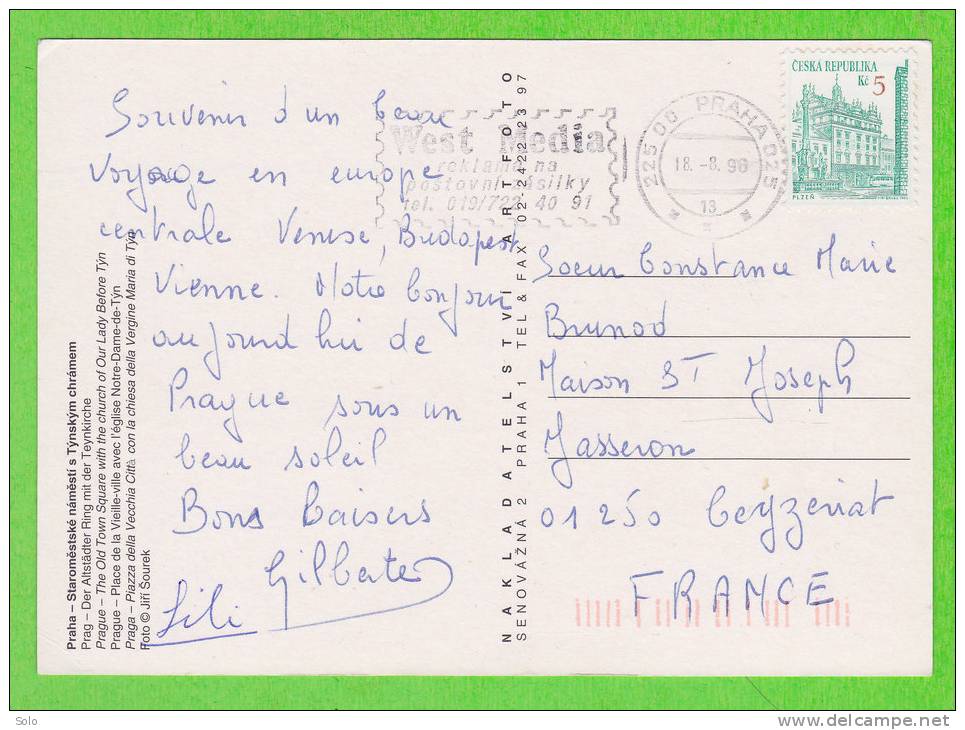 Souvenir d'un beau
voyage en europe
centrale Venise, Budapest
Vienne. Notre bonjour
aujourd hui de
Prague sous un
beau soleil
Bons baisers
Gilberte
Lili
Praha – Staroměstské náměstí s Týnským chrámem
Prag – Der Altstädter Ring mit der Teynkirche
Prague – The Old Town Square with the church of Our Lady Before Týn
Prague – Place de la Vieille-ville avec l'église Notre-Dame-de-Týn
Praga – Piazza della Vecchia Città con la chiesa della Vergine Maria di Týn
Foto © Jiří Šourek
NAKLADATELSTVÍ ARTFOTO
SENOVÁŽNÁ 2 PRAHA 1 TEL & FAX 02-24 22 23 97
West Media
reklama na
poštovní zásilky
tel. 019/722 40 91
225 00 PRAHA 025
18.-8. 96
13
ČESKÁ REPUBLIKA
Kč 5
PLZEŇ
Soeur Constance Marie
Brunod
Maison ST Joseph
Jasseron
01250 Ceyzeriat
FRANCE
Solo
http://www.delcampe.net